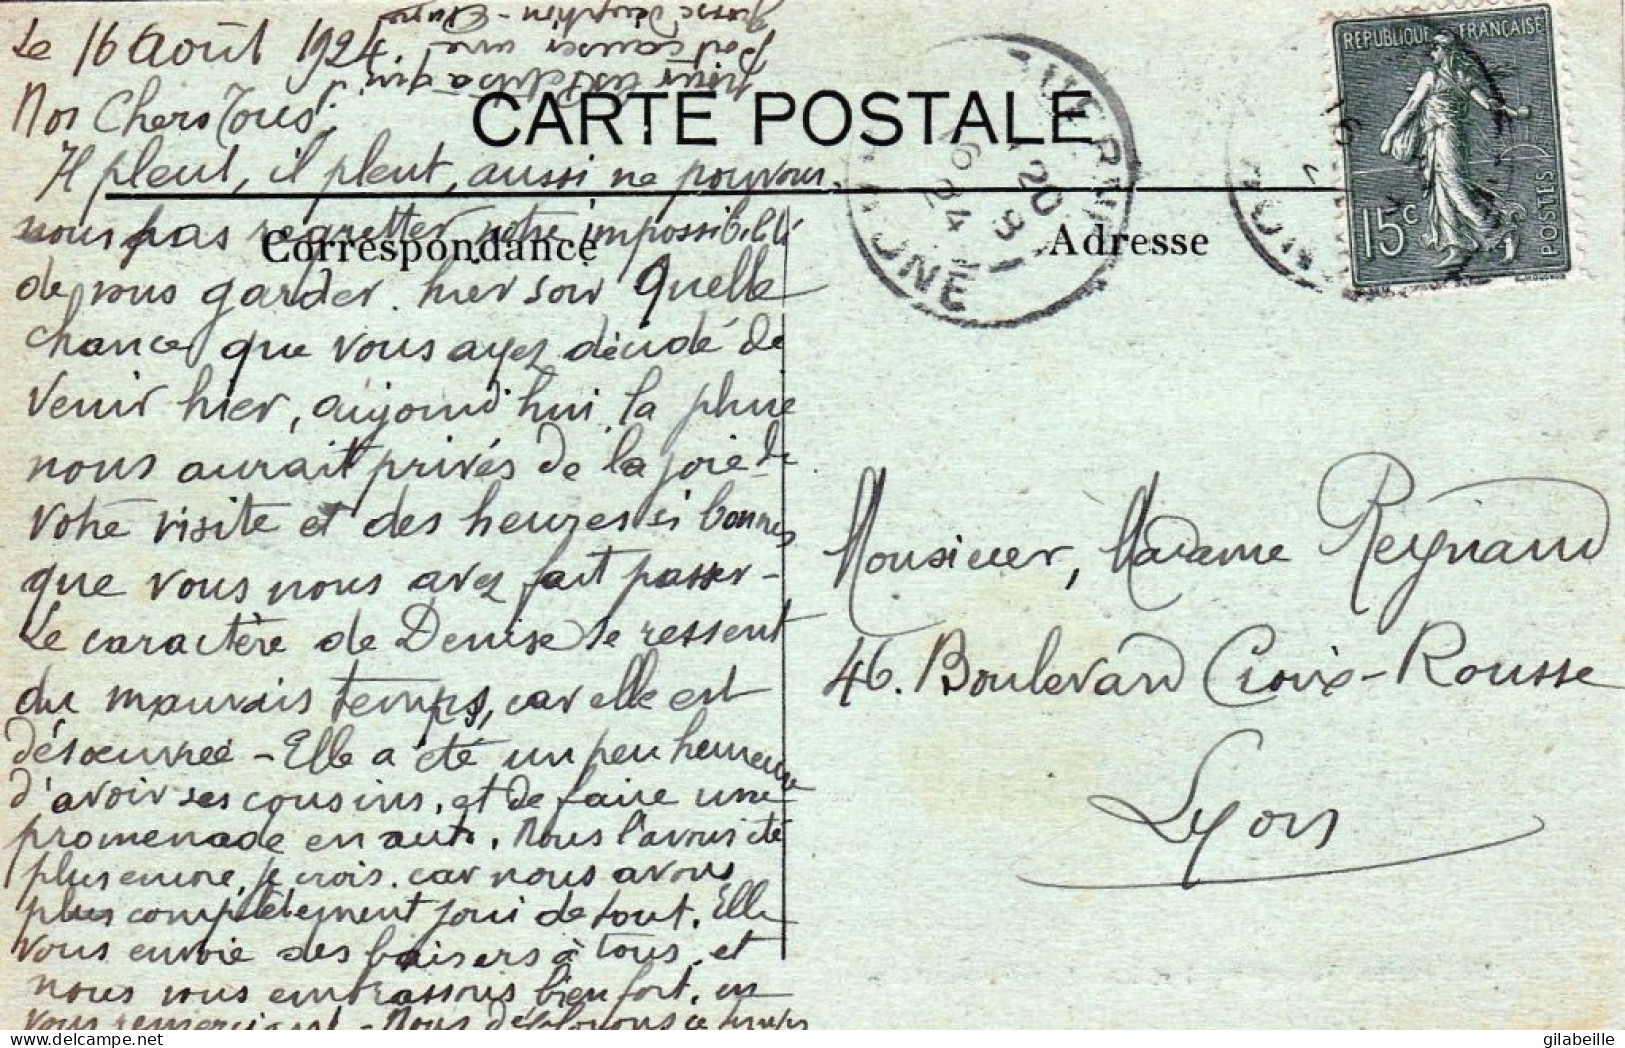 Le 16 Août 1924
Nos Chers Tous,
Il pleut, il pleut, aussi ne pouvons
nous pas regretter notre impossibilité
de vous garder hier soir Quelle
chance que vous ayez décidé de
venir hier, aujourd'hui la pluie
nous aurait privés de la joie de
votre visite et des heures si bonnes
que vous nous avez fait passer -
Le caractère de Denise se ressent
du mauvais temps, car elle est
désoeuvrée - Elle a été un peu heureuse
d'avoir ses cousins, et de faire une
promenade en auto. Nous l'avons été
plus encore, je crois, car nous avons
plus complètement joui de tout. Elle
vous envoie des baisers à tous, et
nous vous embrassons bien fort, en
vous remerciant - Nous déplorons ce temps
pour
qui
peut causer une
grosse déception -
CARTE POSTALE
Correspondance
Adresse
RÉPUBLIQUE FRANÇAISE
15c
POSTES
16 - 8
24
Monsieur, Madame Reynaud
46. Boulevard Croix-Rousse
Lyon
gilabeille